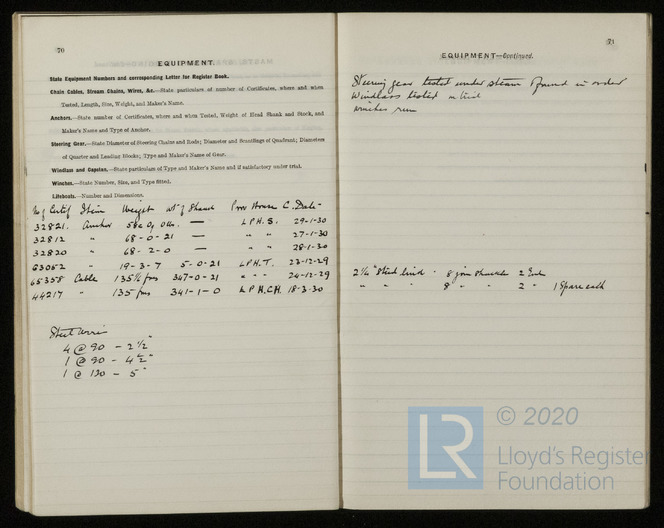 70
EQUIPMENT.
State Equipment Numbers and corresponding Letter for Register Book.
Chain Cables, Stream Chains, Wires, &c.—State particulars of number of Certificates, where and when
Tested, Length, Size, Weight, and Maker's Name.
Anchors.—State number of Certificates, where and when Tested, Weight of Head Shank and Stock, and
Maker's Name and Type of Anchor.
Steering Gear.—State Diameter of Steering Chains and Rods; Diameter and Scantlings of Quadrant; Diameters
of Quarter and Leading Blocks; Type and Maker's Name of Gear.
Windlass and Capstan.—State particulars of Type and Maker's Name and if satisfactory under trial.
Winches.—State Number, Size, and Type fitted.
Lifeboats.—Number and Dimensions.
No of Certif Item Weight wt of Shank Prov House C. Date
32821. Anchor — L.P.H.S. 29-1-30
32812 " 68-0-21 — " " 27-1-30
32820 " 68-2-0 — " " 28-1-30
63052 " 19-3-7 5-0-21 L.P.H.T. 23-12-29
65358 Cable 135 347-0-21 " " " 24-12-29
44217 " 135 341-1-0 L.P.H.CH. 18-3-30
Steel
4 @ 90 - 2½"
1 @ 90 - 4½"
1 @ 130 - 5"
71
EQUIPMENT—Continued.
Steering gear tested under steam & found in order
Windlass tested
winches run
8 2
" " " 8 " " 2 " 1 Spare each
LR
© 2020
Lloyd's Register
Foundation